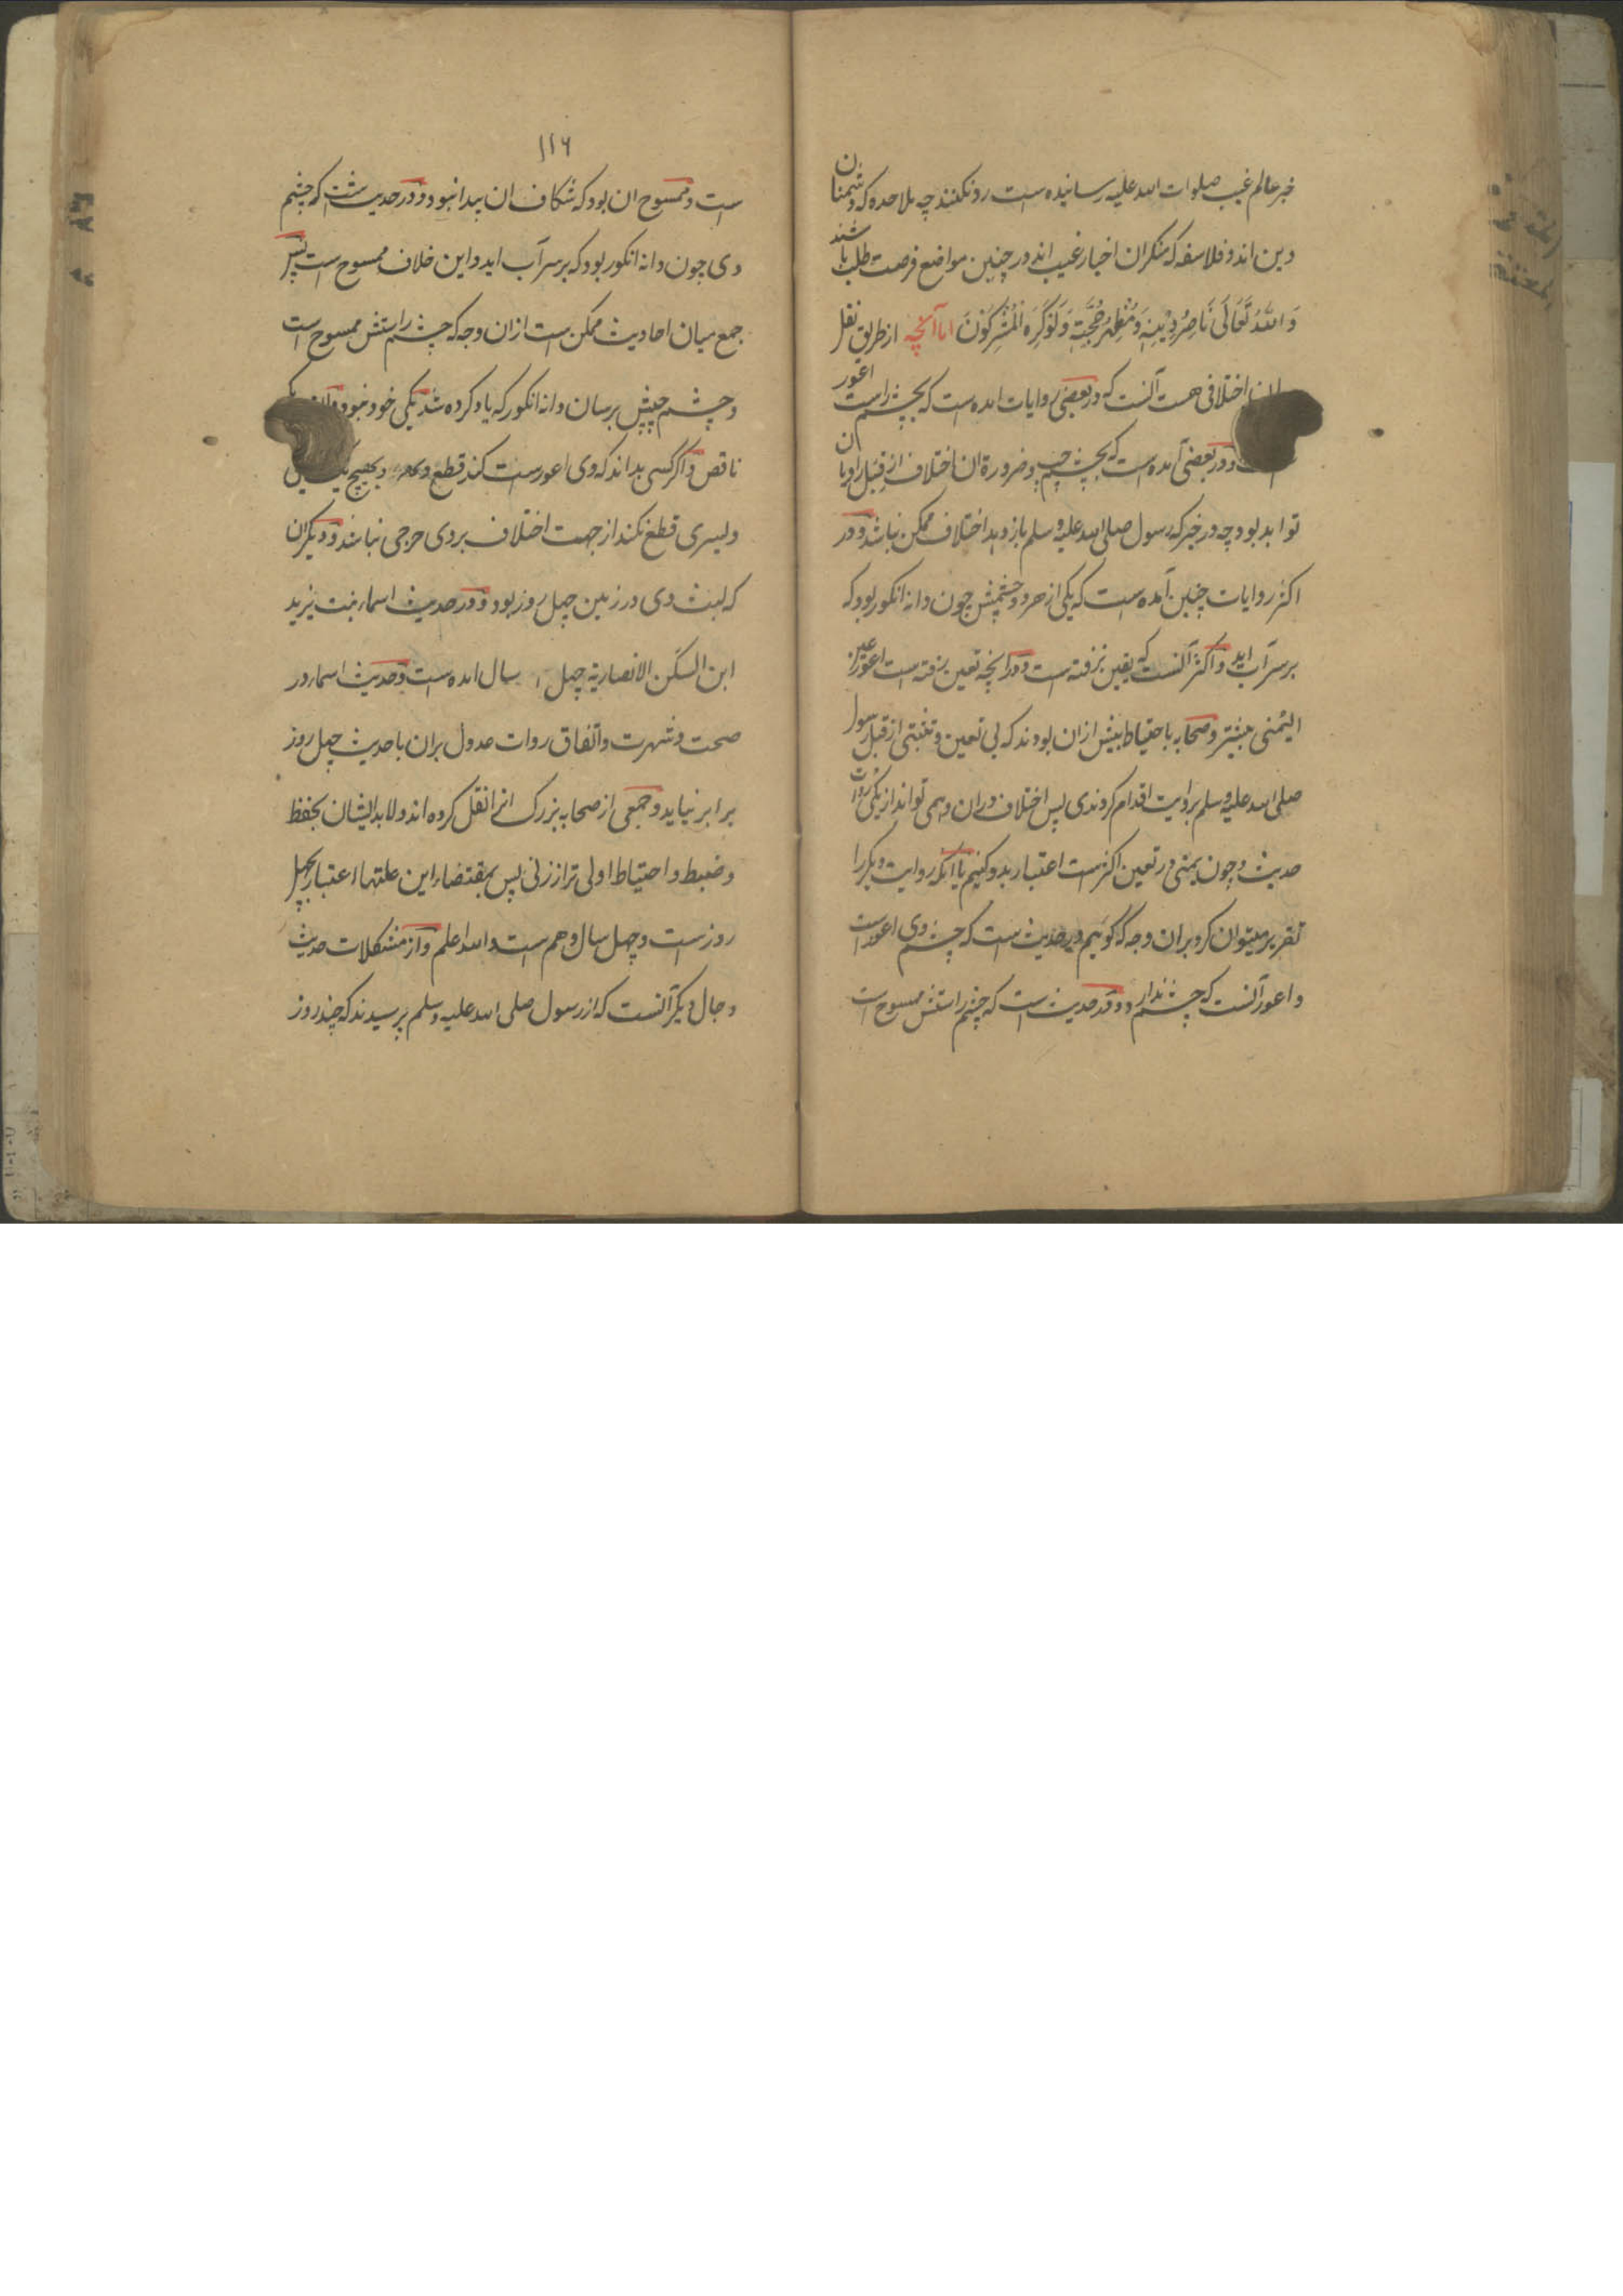 خبر عالم غیب صلوات الله علیه رسانیده است رد نکنند چه ملاحده که دشمنان
دین اند و فلاسفه که منکران اخبار غیب اند در چنین مواضع فرصت طلب باشند
وَاللَّهُ تَعَالَى نَاصِرُ دِيْنِهِ وَمُظْهِرُ حُجَّتِهِ وَلَوْ كَرِهَ الْمُشْرِكُوْنَ اما آنچه از طریق نقل
اختلافی هست آنست که در بعضی روایات امده است که بچشم راست اعور
و در بعضی آمده است که بچشم چپ و ضرورة ان اختلاف از قبل راویان
تواند بود چه در خبر که رسول صلی الله علیه وسلم باز دهد اختلاف ممکن نباشد و در
اکثر روایات چنین آمده است که یکی از هر دو چشمش چون دانه انکور بود که
بر سر آب اید و اکثر آنست که یقین نرفته است و در انچه تعین رفته است اعور عین
الیمنی بیشتر و صحابه با حتیاط بیش ازان بودند که بی تعین و تثبتی از قبل رسول
صلی الله علیه وسلم بروایت اقدام کردندی پس اختلاف دران وهمی تواند از یکی روات
حدیث و چون یمنی در تعین اکثرست اعتبار بدو کنیم یا انکه روایت دیکر را
تقریر میتوان کرد بران وجه که گوئیم در حدیث است که چشم وی اعورست
و اعور آنست که چشم ندارد و در حدیث است که چشم راستش ممسوح است
۱۱۶
ست و ممسوح ان بود که شکاف ان پیدا نبود و در حدیث است که چشم
وی چون دانه انکور بود که بر سر آب اید و این خلاف ممسوح است پس
جمع میان احادیث ممکن است ازان وجه که چشم راستش ممسوح است
و چشم چپش برسان دانه انکور که یاد کرده شد یکی خود نبود و آن
ناقص و اگر کسی بداند که وی اعورست کند قطع
ولیسری قطع نکند از جهت اختلاف بر وی حرجی نباشد و دیکر ان
که لبث وی در زمین چهل روز بود و در حدیث اسماء بنت یزید
ابن السکن الانصاریة چهل سال امده است و حدیث اسماء در
صحت و شهرت و اتفاق روات عدول بران با حدیث چهل روز
برابر نیاید و جمعی از صحابه بزرک انرا نقل کرده اند و لابد ایشان بحفظ
و ضبط و احتیاط اولی تر از زنی پس بمقتضاء این علتها اعتبار بچهل
روزست و چهل سال وهم است والله اعلم و از مشکلات حدیث
دجال دیکر آنست که از رسول صلی الله علیه وسلم پرسیدند که چند روز